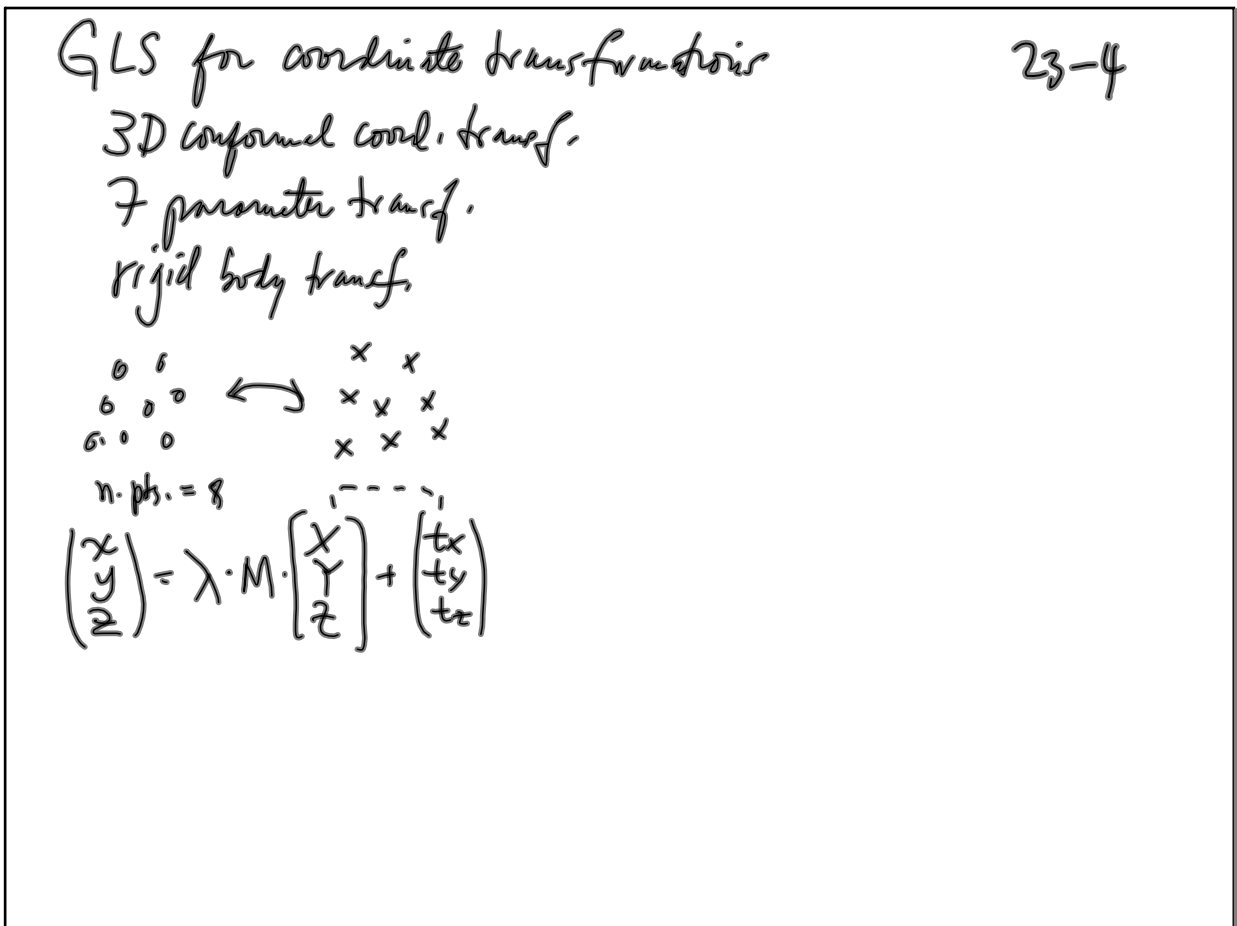 GLS for coordinate transformations 23-4
3D conformal coord. transf.
7 parameter transf.
rigid body transf.
n. pts. = 8
(x y z) = λ · M · [X Y Z] + (tx ty tz)